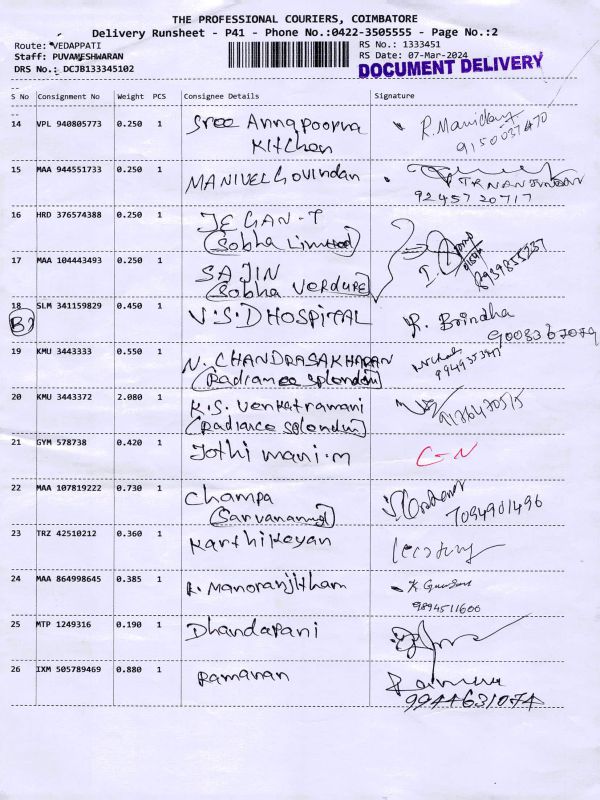 THE PROFESSIONAL COURIERS, COIMBATORE
Delivery Runsheet - P41 - Phone No.:0422-3505555 - Page No.:2
Route: VEDAPPATI RS No.: 1333451
Staff: PUVANESHWARAN RS Date: 07-Mar-2024
DRS No.: DCJB133345102 DOCUMENT DELIVERY
S No Consignment No Weight PCS Consignee Details Signature
14 VPL 940805773 0.250 1 Sree Annapoorna
Kitchen
9150037470
15 MAA 944551733 0.250 1 MANIVEL Govindan
9245720717
16 HRD 376574388 0.250 1 JEGAN-T
(Sobha Limited)
17 MAA 104443493 0.250 1 SAJIN
(Sobha Verdure)
18 SLM 341159829 0.450 1 V.S.D HOSPITAL R. Brindha
B) 9008367079
19 KMU 3443333 0.550 1 N. CHANDRASAKHARAN
(Radiance Splendour)
20 KMU 3443372 2.080 1 K.S. Venkatramani
(Radiance Splendour) 9176470515
21 GYM 578738 0.420 1 Jothi mani.m
22 MAA 107819222 0.730 1 Champa
7094901496
23 TRZ 42510212 0.360 1 Karthikeyan
24 MAA 864998645 0.385 1 R. Manoranjitham
9894511600
25 MTP 1249316 0.190 1 Dhandapani
26 IXM 505789469 0.880 1 Ramanan
9944631074